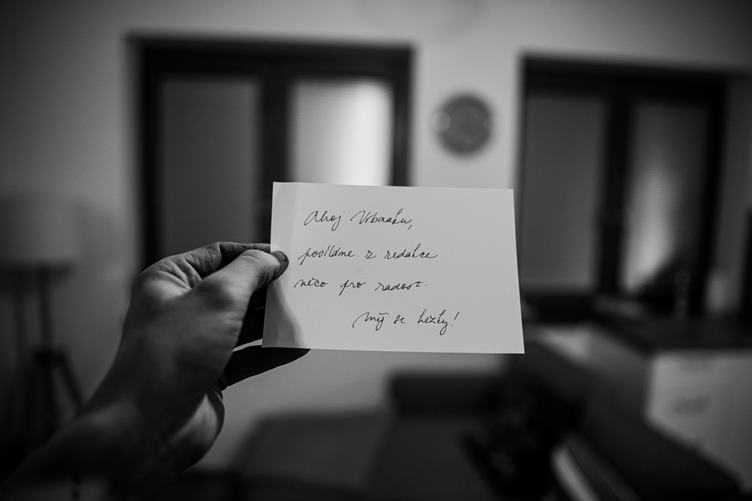 Ahoj Vrbaaku,
posíláme z redakce
něco pro radost.
Měj se hezky!